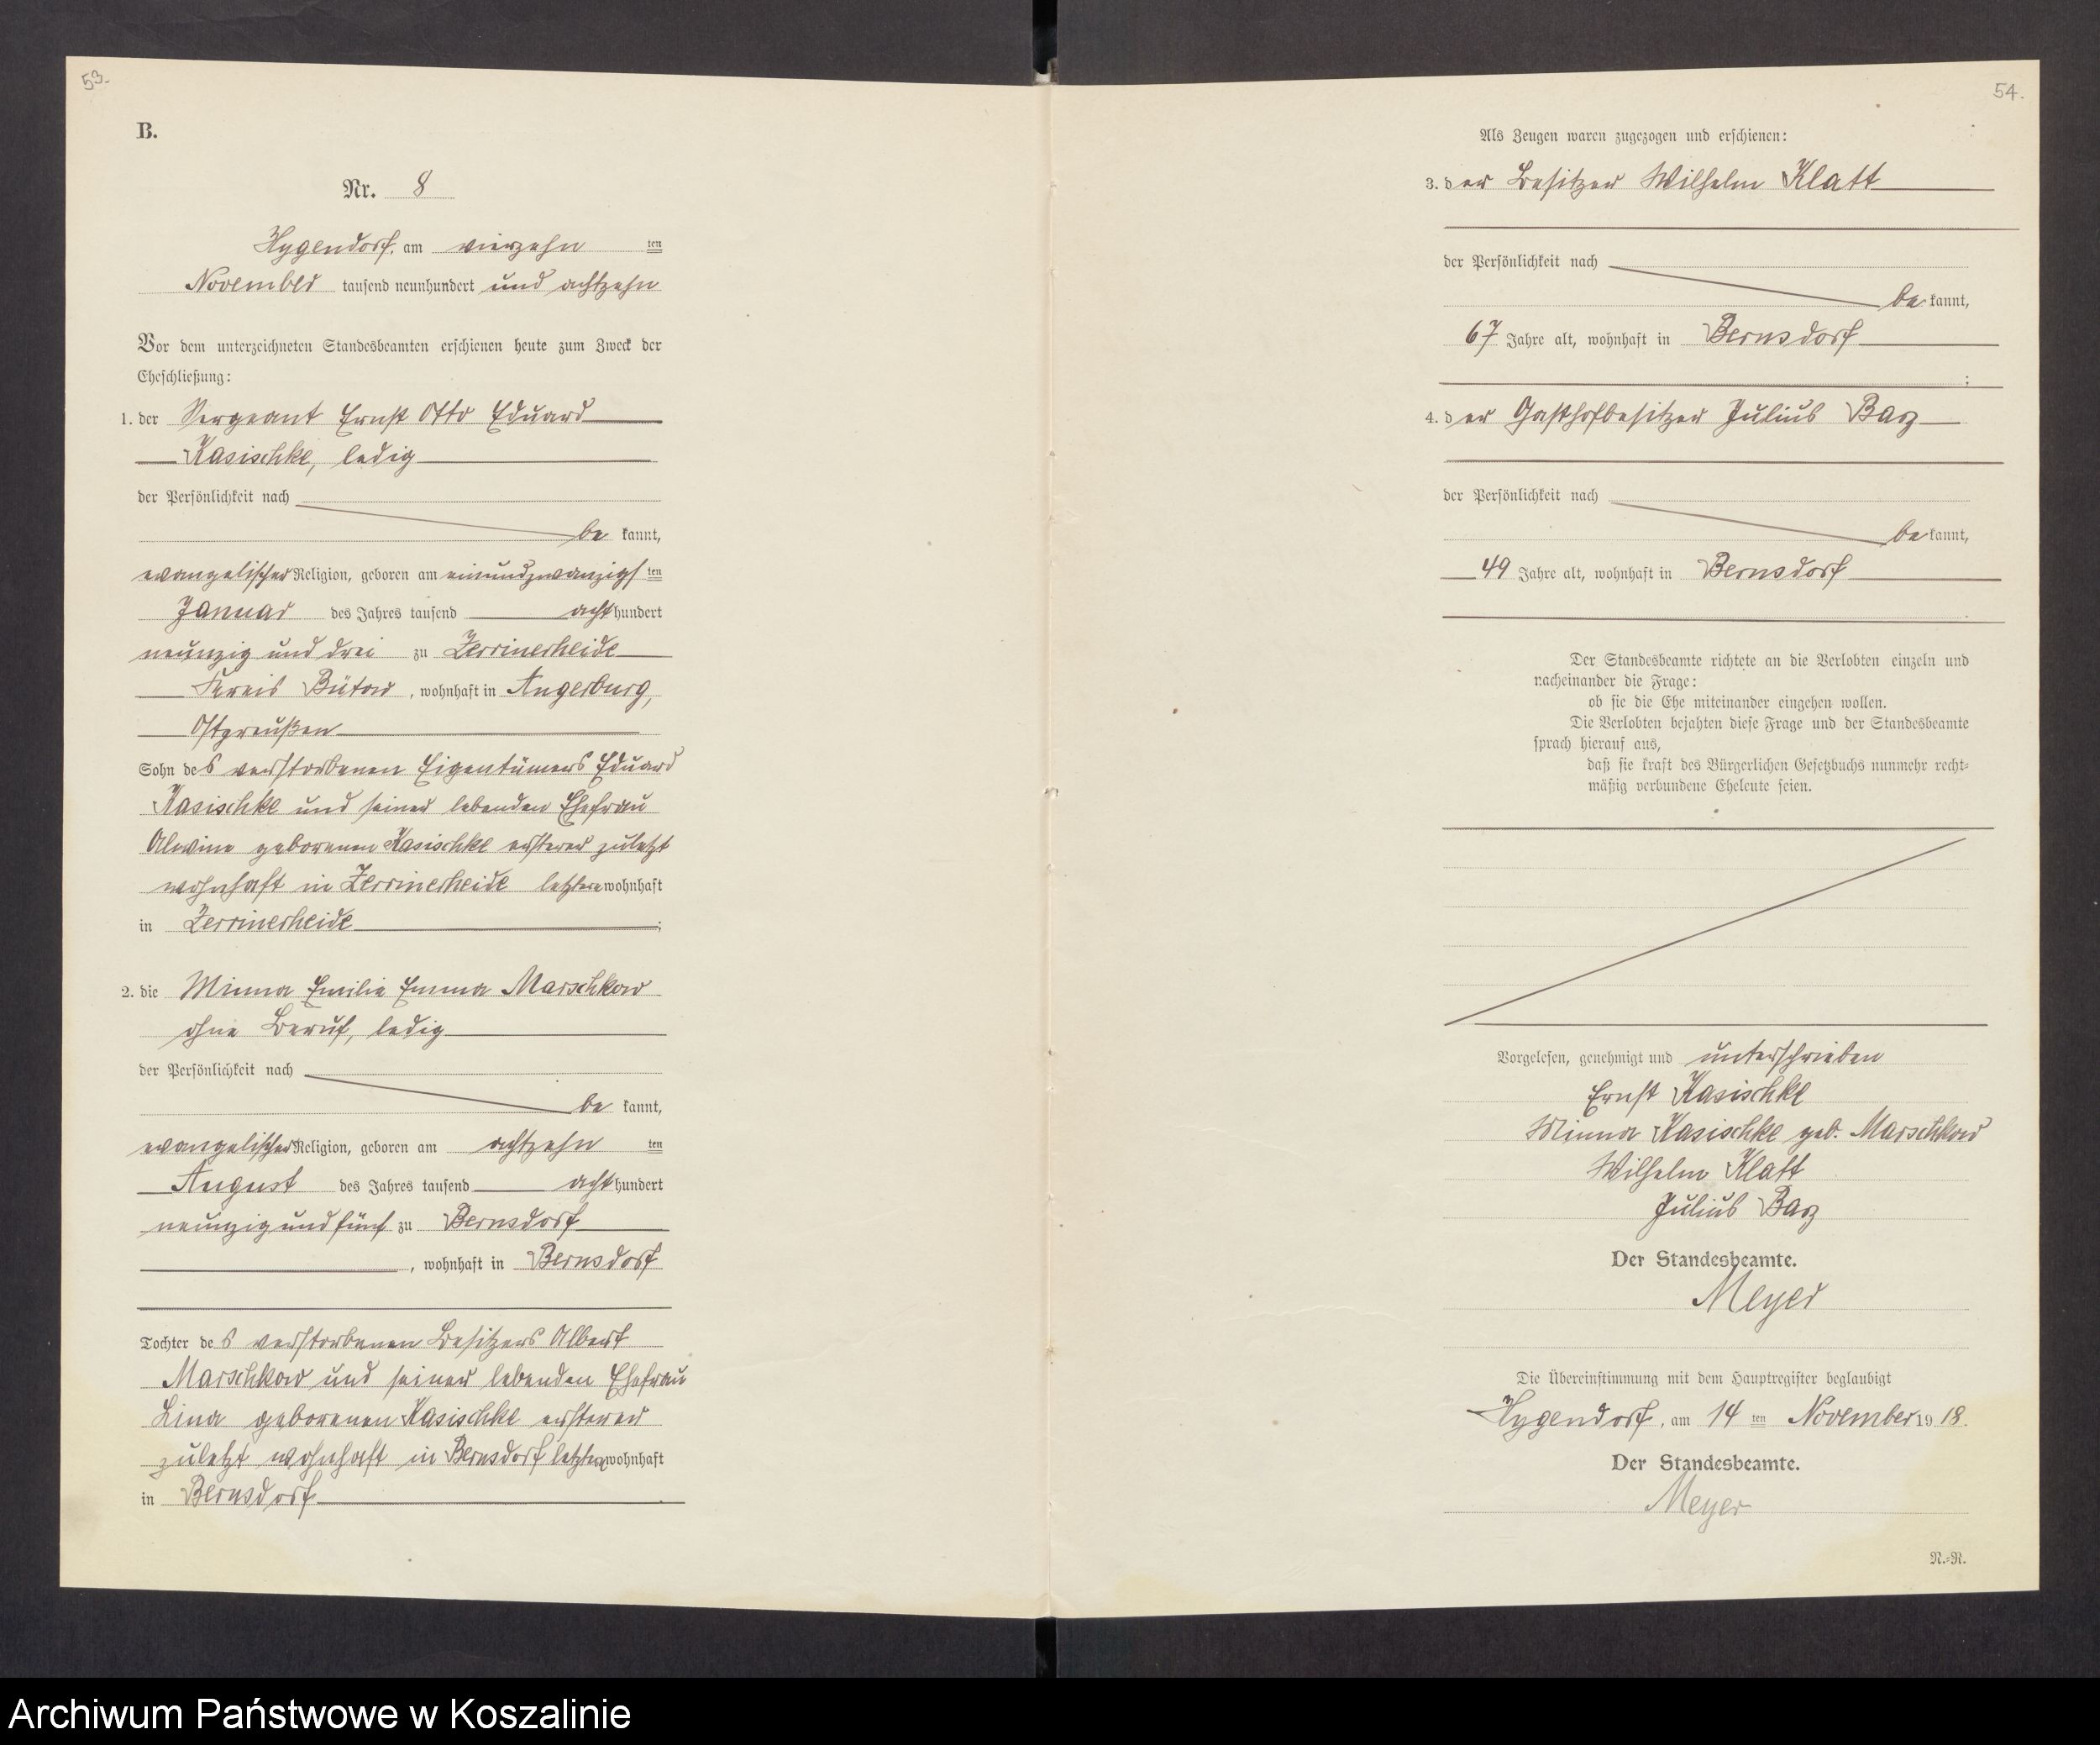 53.
B.
Nr. 8
Hygendorf, am vierzehn ten
November tausend neunhundert und achtzehn
Vor dem unterzeichneten Standesbeamten erschienen heute zum Zweck der
Eheschließung:
1. der Sergeant Ernst Otto Eduard
Kasischke, ledig
der Persönlichkeit nach
be kannt,
evangelischer Religion, geboren am einundzwanzigs ten
Januar des Jahres tausend acht hundert
neunzig und drei zu Zerrinerheide
Kreis Bütow, wohnhaft in Angerburg,
Ostpreußen
Sohn des verstorbenen Eigentümers Eduard
Kasischke und seiner lebenden Ehefrau
Alwine geborenen Kasischke ersterer zuletzt
wohnhaft in Zerrinerheide letztere wohnhaft
in Zerrinerheide ;
2. die Minna Emilie Emma Marschkow
ohne Beruf, ledig
der Persönlichkeit nach
be kannt,
evangelischer Religion, geboren am achtzehn ten
August des Jahres tausend acht hundert
neunzig und fünf zu Bernsdorf
, wohnhaft in Bernsdorf
Tochter des verstorbenen Besitzers Albert
Marschkow und seiner lebenden Ehefrau
Lina geborenen Kasischke ersterer
zuletzt wohnhaft in Bernsdorf letztere wohnhaft
in Bernsdorf
54.
Als Zeugen waren zugezogen und erschienen:
3. der Besitzer Wilhelm Klatt
der Persönlichkeit nach
be kannt,
67 Jahre alt, wohnhaft in Bernsdorf
;
4. der Gasthofbesitzer Julius Barz
der Persönlichkeit nach
be kannt,
49 Jahre alt, wohnhaft in Bernsdorf
Der Standesbeamte richtete an die Verlobten einzeln und
nacheinander die Frage:
ob sie die Ehe miteinander eingehen wollen.
Die Verlobten bejahten diese Frage und der Standesbeamte
sprach hierauf aus,
daß sie kraft des Bürgerlichen Gesetzbuchs nunmehr recht-
mäßig verbundene Eheleute seien.
Vorgelesen, genehmigt und unterschrieben
Ernst Kasischke
Minna Kasischke geb. Marschkow
Wilhelm Klatt
Julius Barz
Der Standesbeamte.
Meyer
Die Übereinstimmung mit dem Hauptregister beglaubigt
Hygendorf, am 14 ten November 19 18.
Der Standesbeamte.
Meyer
N.-R.
Archiwum Państwowe w Koszalinie